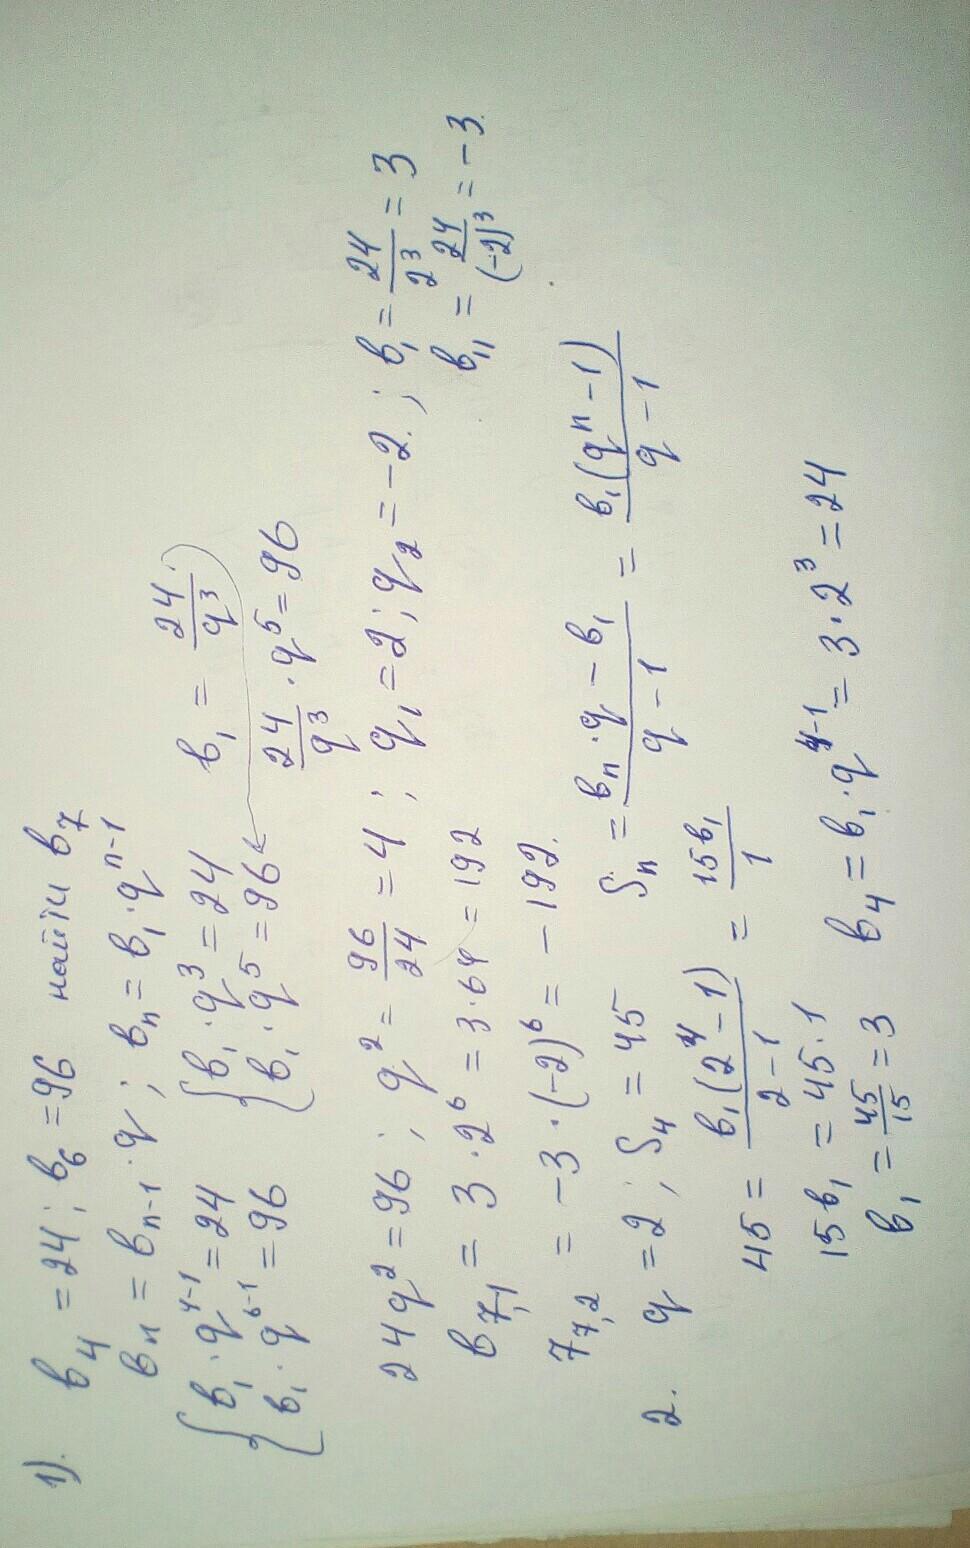 1). в₄ = 24; в₆ = 96 найти в₇
вₙ = вₙ₋₁·q; вₙ = в₁·qⁿ⁻¹
{в₁·q⁴⁻¹ = 24 {в₁·q³ = 24 в₁ = 24/q³
{в₁·q⁶⁻¹ = 96 {в₁·q⁵ = 96 24/q³·q⁵ = 96
24q² = 96; q² = 96/24 = 4; q₁ = 2; q₂ = -2.; в₁ = 24/2³ = 3
в₇,₁ = 3·2⁶ = 3·64 = 192 в₁₁ = 24/(-2)³ = -3.
7₇,₂ = -3·(-2)⁶ = -192.
2. q = 2; S₄ = 45 Sₙ = (вₙ·q - в₁)/(q - 1) = в₁(qⁿ - 1)/(q - 1)
45 = в₁(2⁴ - 1)/(2 - 1) = 15в₁/1
15в₁ = 45·1
в₁ = 45/15 = 3 в₄ = в₁·q⁴⁻¹ = 3·2³ = 24